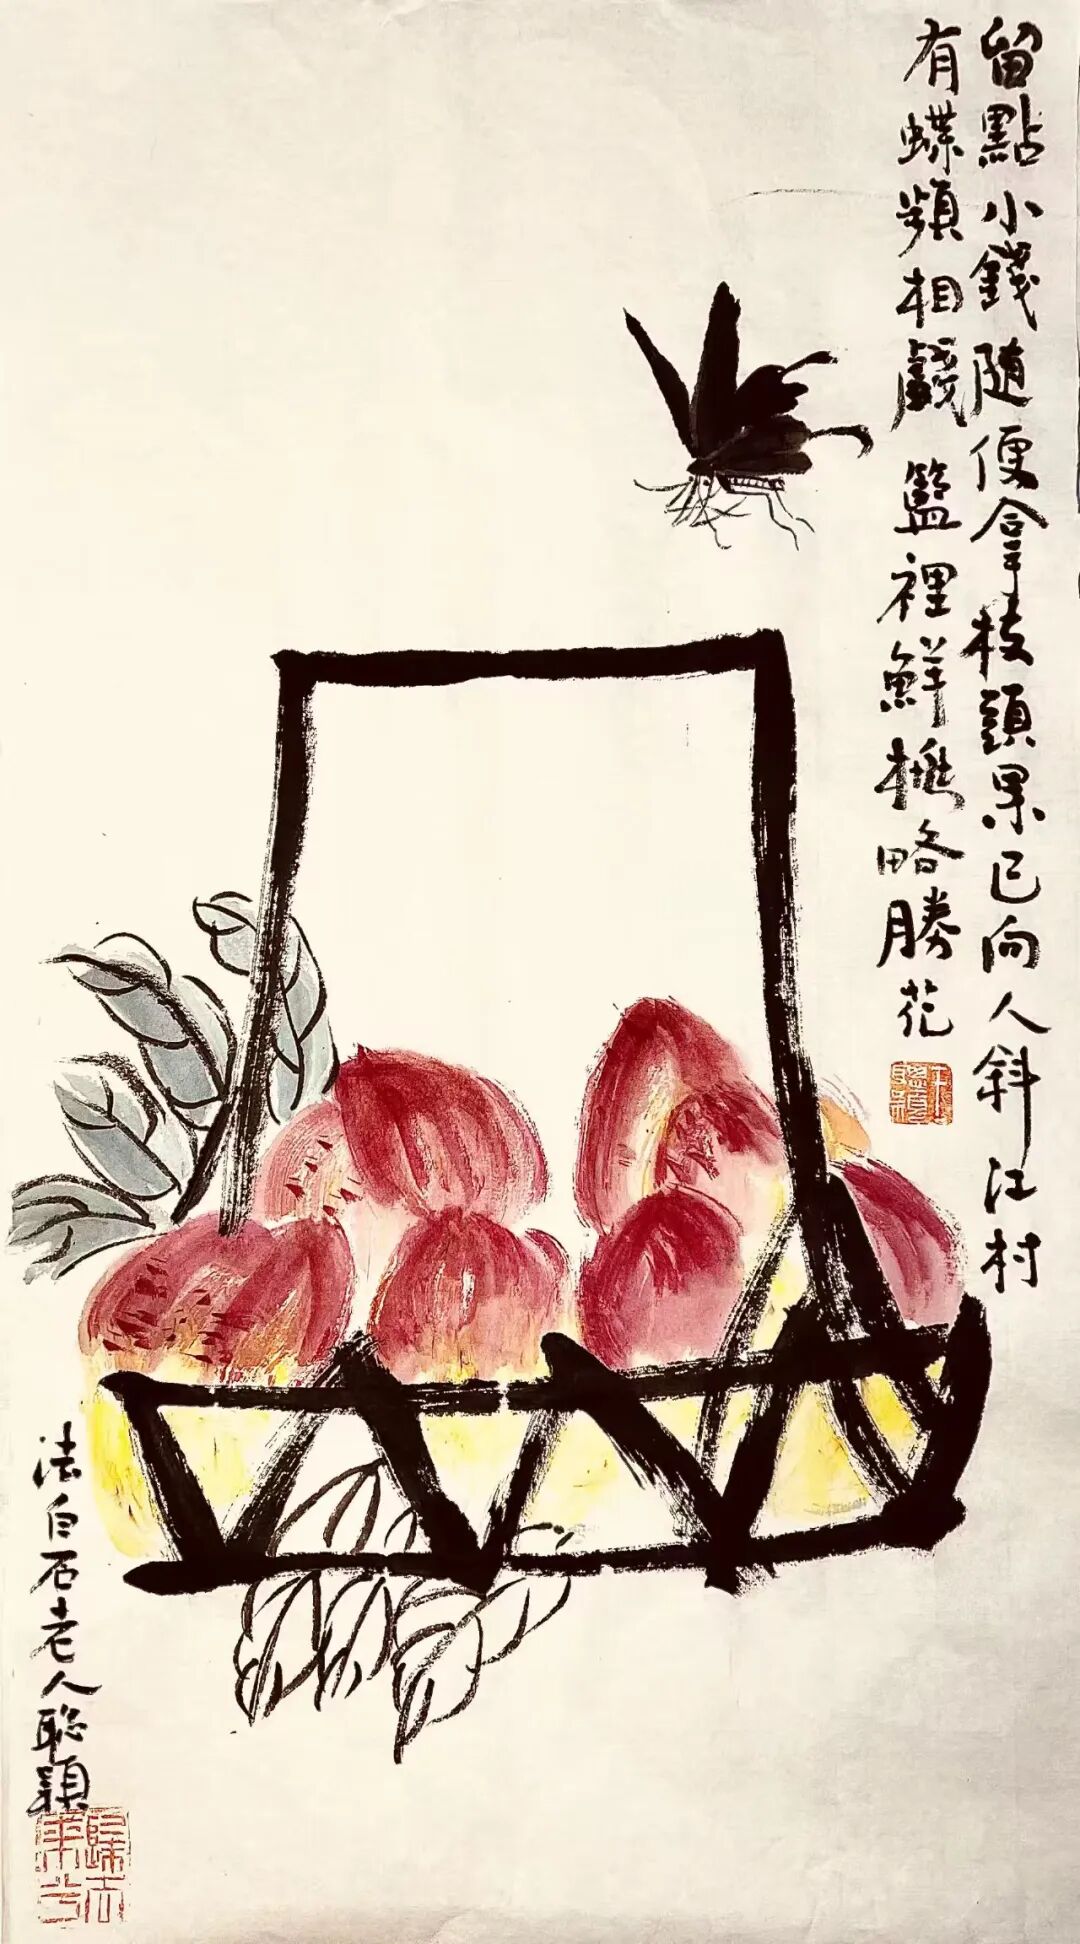 留點小錢随便拿枝頭果已向人斜江村
有蝶頻相戲籃裡鮮桃略勝花
法白石老人聪穎
歸去來兮